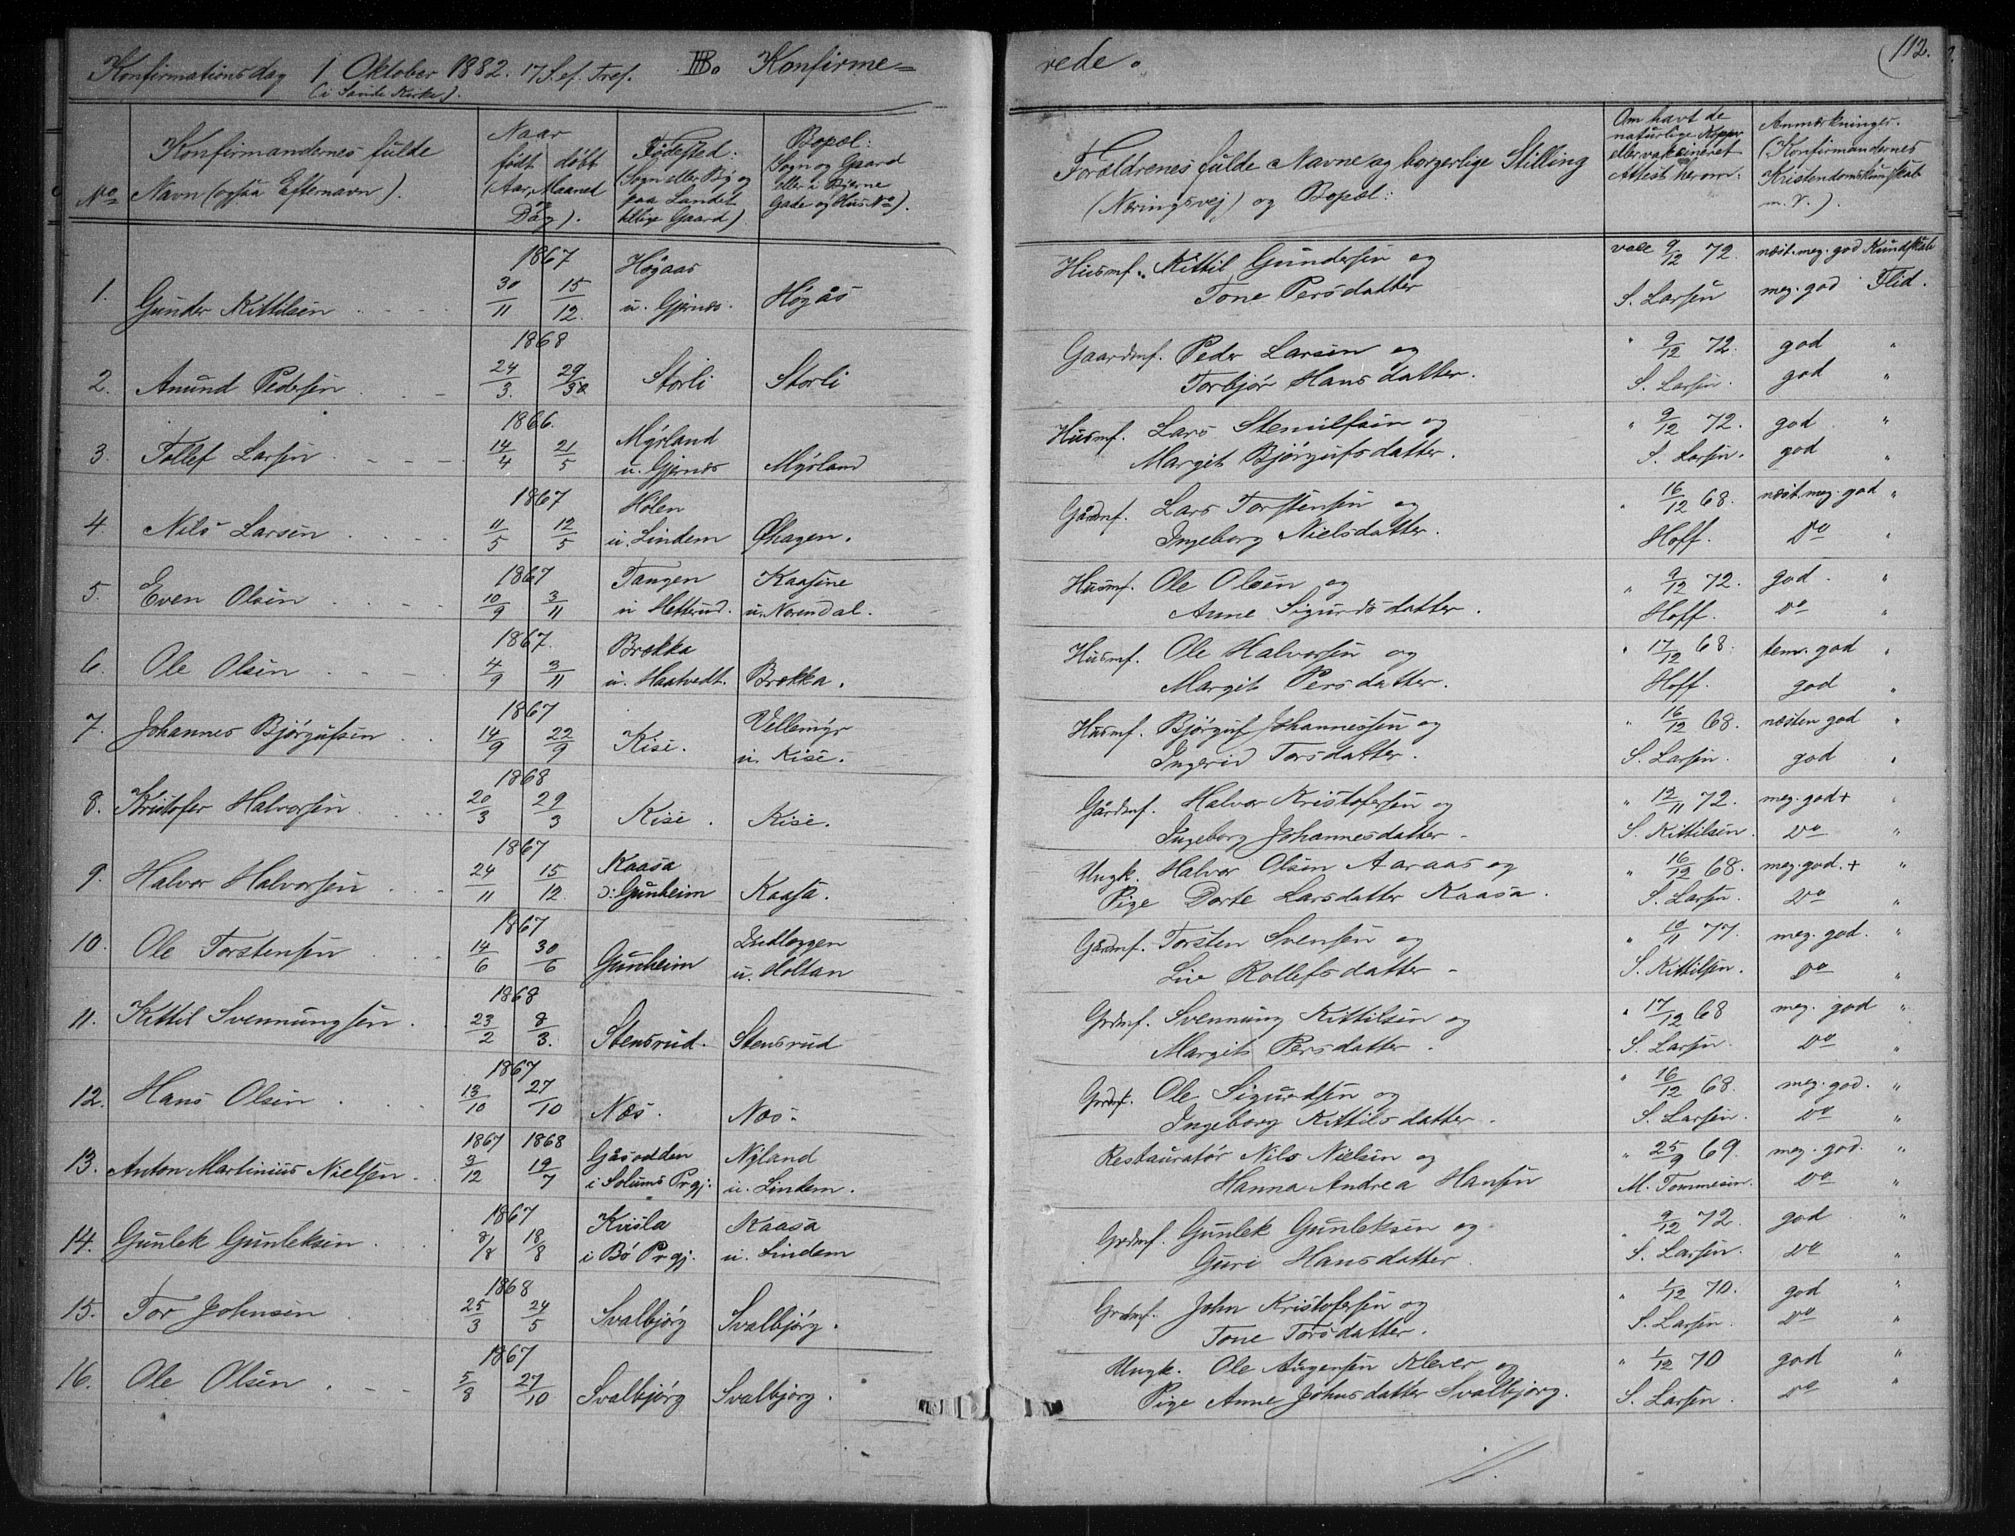 Konfirmationsdag 1 Oktober 1882. 17 S. ef. Tref. III B. Konfirme=
(i Saude Kirke).
rede. (112.
No
Konfirmandernes fulde
Navn (ogsaa Efternavn).
Naar
født døbt
(Aar, Maaned
og
Dag).
Fødested:
(Sogn eller By og
paa Landet
tillige Gaard).
Bopæl:
(Sogn og Gaard
eller i Byerne
Gade og Hus No).
Forældrenes fulde Navne og borgerlige Stilling
(Næringsvej) og Bopæl:
Om havt de
naturlige Kopper
eller vaksineret
Attest herom:
Anmærkninger.
(Konfirmandernes
Kristendomskundskab
m. v.).
1. Gunder Kittilsen 1867 30/11 15/12 Högaas
u. Gjernes. Högås
Husmf. Kittil Gundersen og vacc 9/12 72. næst. meg. god Kundskab
Tone Persdatter S. Larsen meg. god Flid.
2. Amund Pedersen 1868 24/3. 29/3 Storli Storli
Gaardmf. Peder Larsen og " 9/12 72. god "
Torbjør Hansdatter. S. Larsen. god "
3. Tollef Larsen 1866. 14/4 21/5 Mýrland
u. Gjernes Mýrland
Husmf. Lars Stenulfsen og " 9/12 72. god "
Margit Bjørgufsdatter. S. Larsen. god "
4. Nils Larsen 1867 11/5 12/5 Hølen
u. Lindem Øhagen.
Gårdmf. Lars Torstensen og " 16/12 68. næst. meg. god "
Ingeborg Nielsdatter. Hoff. Do "
5. Even Olsen 1867 10/9 3/11 Tangen Kaasine
u Hetterud. u. Norendal.
Husmf. Ole Olsen og " 9/12 72. god. "
Anne Sigurdsdatter. Hoff. Do "
6. Ole Olsen 1867. 4/9 3/11 Brekka
u. Haatvedt. Brekka.
Husmf. Ole Halvorsen og " 17/12 68. tem. god "
Margit Persdatter. Hoff. god "
7. Johannes Bjørgufsen 1867 14/9 22/9 Kise. Vellemýr
u. Kise.
Husmf. Bjørguf Johannessen og " 16/12 68. næsten god "
Ingerid Torsdatter. S. Larsen. god "
8. Kristofer Halvorsen 1868 20/3 29/3 Kise. Kise.
Gårdmf. Halvor Kristofersen og " 12/11 72. meg. god + "
Ingeborg Johannesdatter - S. Kittilsen. Do "
9. Halvor Halvorsen 1867 24/11 15/12 Kaasa
ɔ: Gunheim Kaasa.
Ungk. Halvor Olsen Aaraas og " 16/12 68. meg. god. + "
Pige Dorte Larsdatter Kaasa. S. Larsen. Do "
10. Ole Torstensen 1867 14/6 30/6 Gunheim
u. Holtan
Gårdmf. Torsten Svensen og " 10/11 77. meg. god. "
Liv Rollefsdatter - S. Kittilsen. Do "
11. Kittil Svennungsen 1868 23/2 8/3. Stensrud. Stensrud
Grdmf. Svennung Kittilsen og " 17/12 68 meg. god "
Margit Persdatter. S. Larsen. Do "
12. Hans Olsen 1867 13/10 27/10 Næs. Næs.
Grdmf. Ole Sigurdsen og " 16/12 68. meg. god. "
Ingeborg Kittilsdatter. S. Larsen. Do "
13. Anton Martinius Nielsen 1867 3/12 1868 19/7 Gåsodden Nýland
i Solums Prgj. u. Lindem.
Restauratør Nils Nielsen og " 25/9 69. meg. god. "
Hanna Andrea Hansen M. Tommesen. Do "
14. Gunlek Gunleksen 1867 8/8 18/8 Kvisla Kaasa
i Bø Prgj. u. Lindem
Grdmf. Gunlek Gunleksen og " 9/12 72. god "
Guri Hansdatter. S. Larsen. Do "
15. Tor Johnsen 1868 25/3 24/5 Svalbjörg Svalbjörg.
Grdmf. John Kristofersen og " 1/12 70. god "
Tone Torsdatter. S. Larsen. Do "
16. Ole Olsen 1867 5/8 27/10 Svalbjörg Svalbjörg.
Ungk. Ole Augensen Klever og " 1/12 70 god "
Pige Anne Johnsdatter Svalbjörg. S. Larsen. Do "